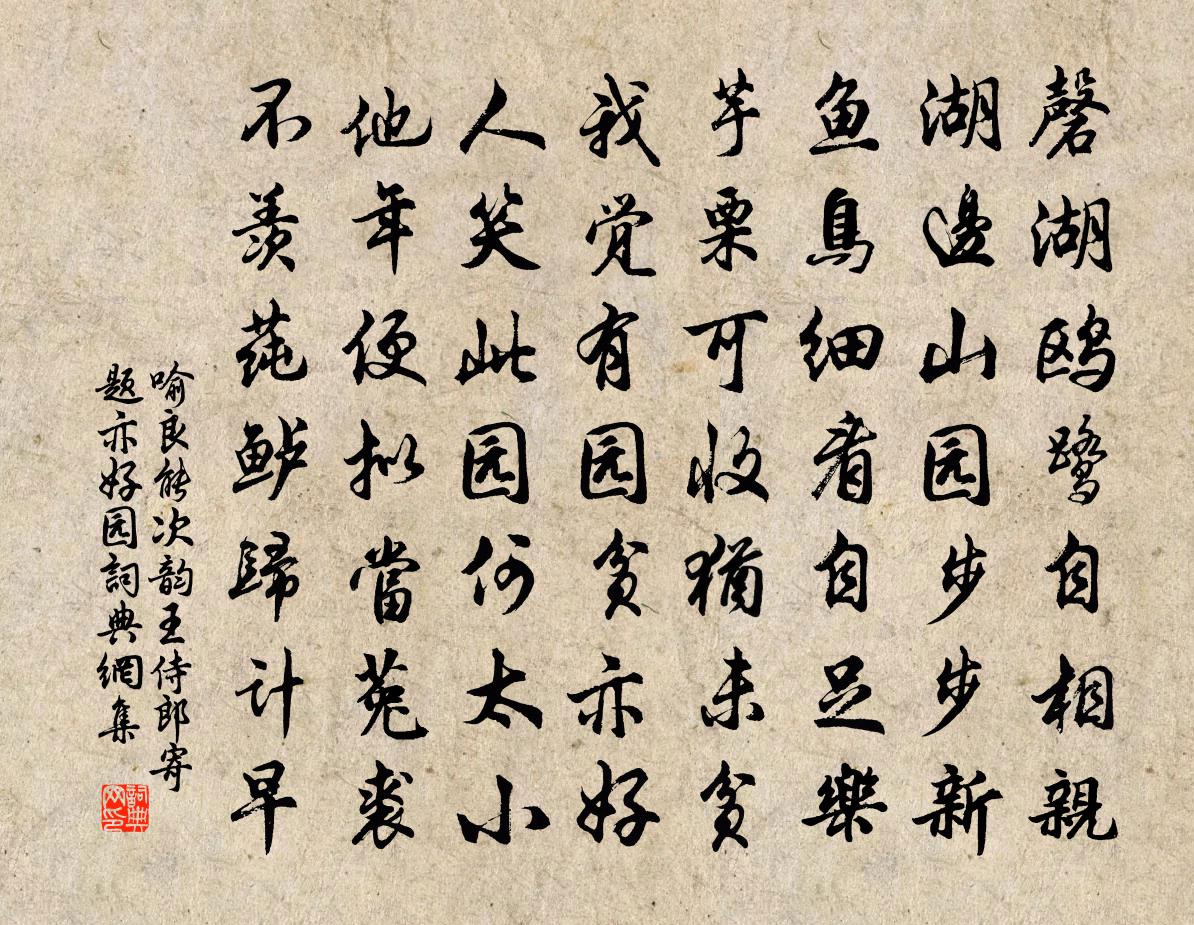 磬湖鸥鹭自相親
湖邊山园步步新
鱼鳥细看自足樂
芋栗可收犹未贫
我觉有园贫亦好
人笑此园何太小
他年便拟當菟裘
不羡莼鲈歸计早
喻良能次韵王侍郎寄
题亦好园詞典網集
詞典网印